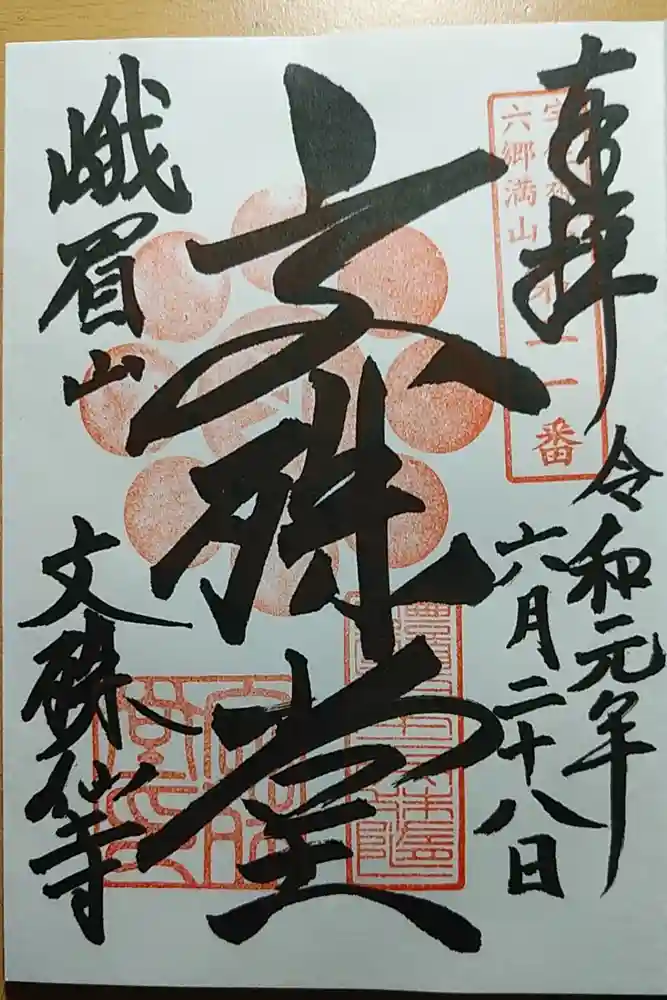 奉拝
六郷満山
二番
令和元年
六月二十八日
文殊堂
峨眉山
文殊仙寺